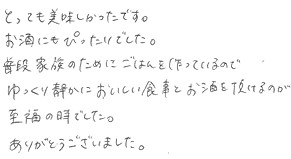 とっても美味しかったです。
お酒にもぴったりでした。
普段家族のためにごはんを作っているので
ゆっくり静かにおいしい食事とお酒を頂けるのが
至福の時でした。
ありがとうございました。